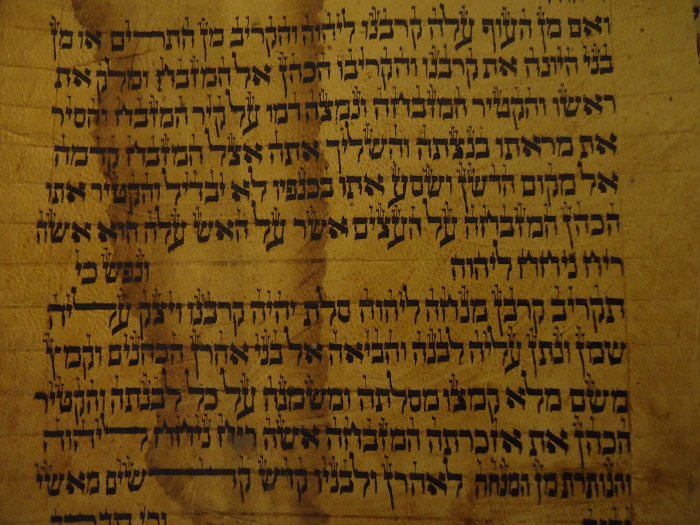 ואם מן העוף עלה קרבנו ליהוה והקריב מן התרים או מן
בני היונה את קרבנו והקריבו הכהן אל המזבח ומלק את
ראשו והקטיר המזבחה ונמצה דמו על קיר המזבח והסיר
את מראתו בנצתה והשליך אתה אצל המזבח קדמה
אל מקום הדשן ושסע אתו בכנפיו לא יבדיל והקטיר אתו
הכהן המזבחה על העצים אשר על האש עלה הוא אשה
ריח ניחח ליהוה ונפש כי
תקריב קרבן מנחה ליהוה סלת יהיה קרבנו ויצק עליה
שמן ונתן עליה לבנה והביאה אל בני אהרן הכהנים וקמץ
משם מלא קמצו מסלתה ומשמנה על כל לבנתה והקטיר
הכהן את אזכרתה המזבחה אשה ריח ניחח ליהוה
והנותרת מן המנחה לאהרן ולבניו קדש קדשים מאשי